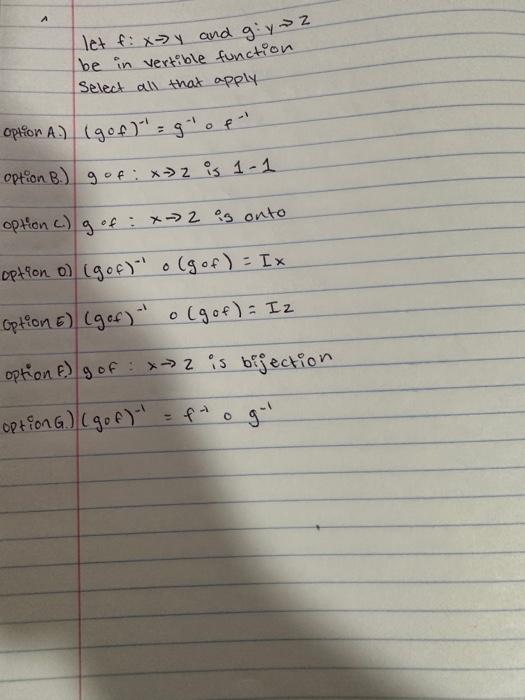 let f: x→y and g: y→z
be in vertible function
Select all that apply
option A.) (gof)⁻¹ = g⁻¹ o f⁻¹
option B.) gof : x→z is 1-1
option C) gof : x→z is onto
option D) (gof)⁻¹ o (gof) = Ix
option E) (gof)⁻¹ o (gof) = Iz
option F.) gof : x→z is bijection
option G.) (gof)⁻¹ = f⁻¹ o g⁻¹